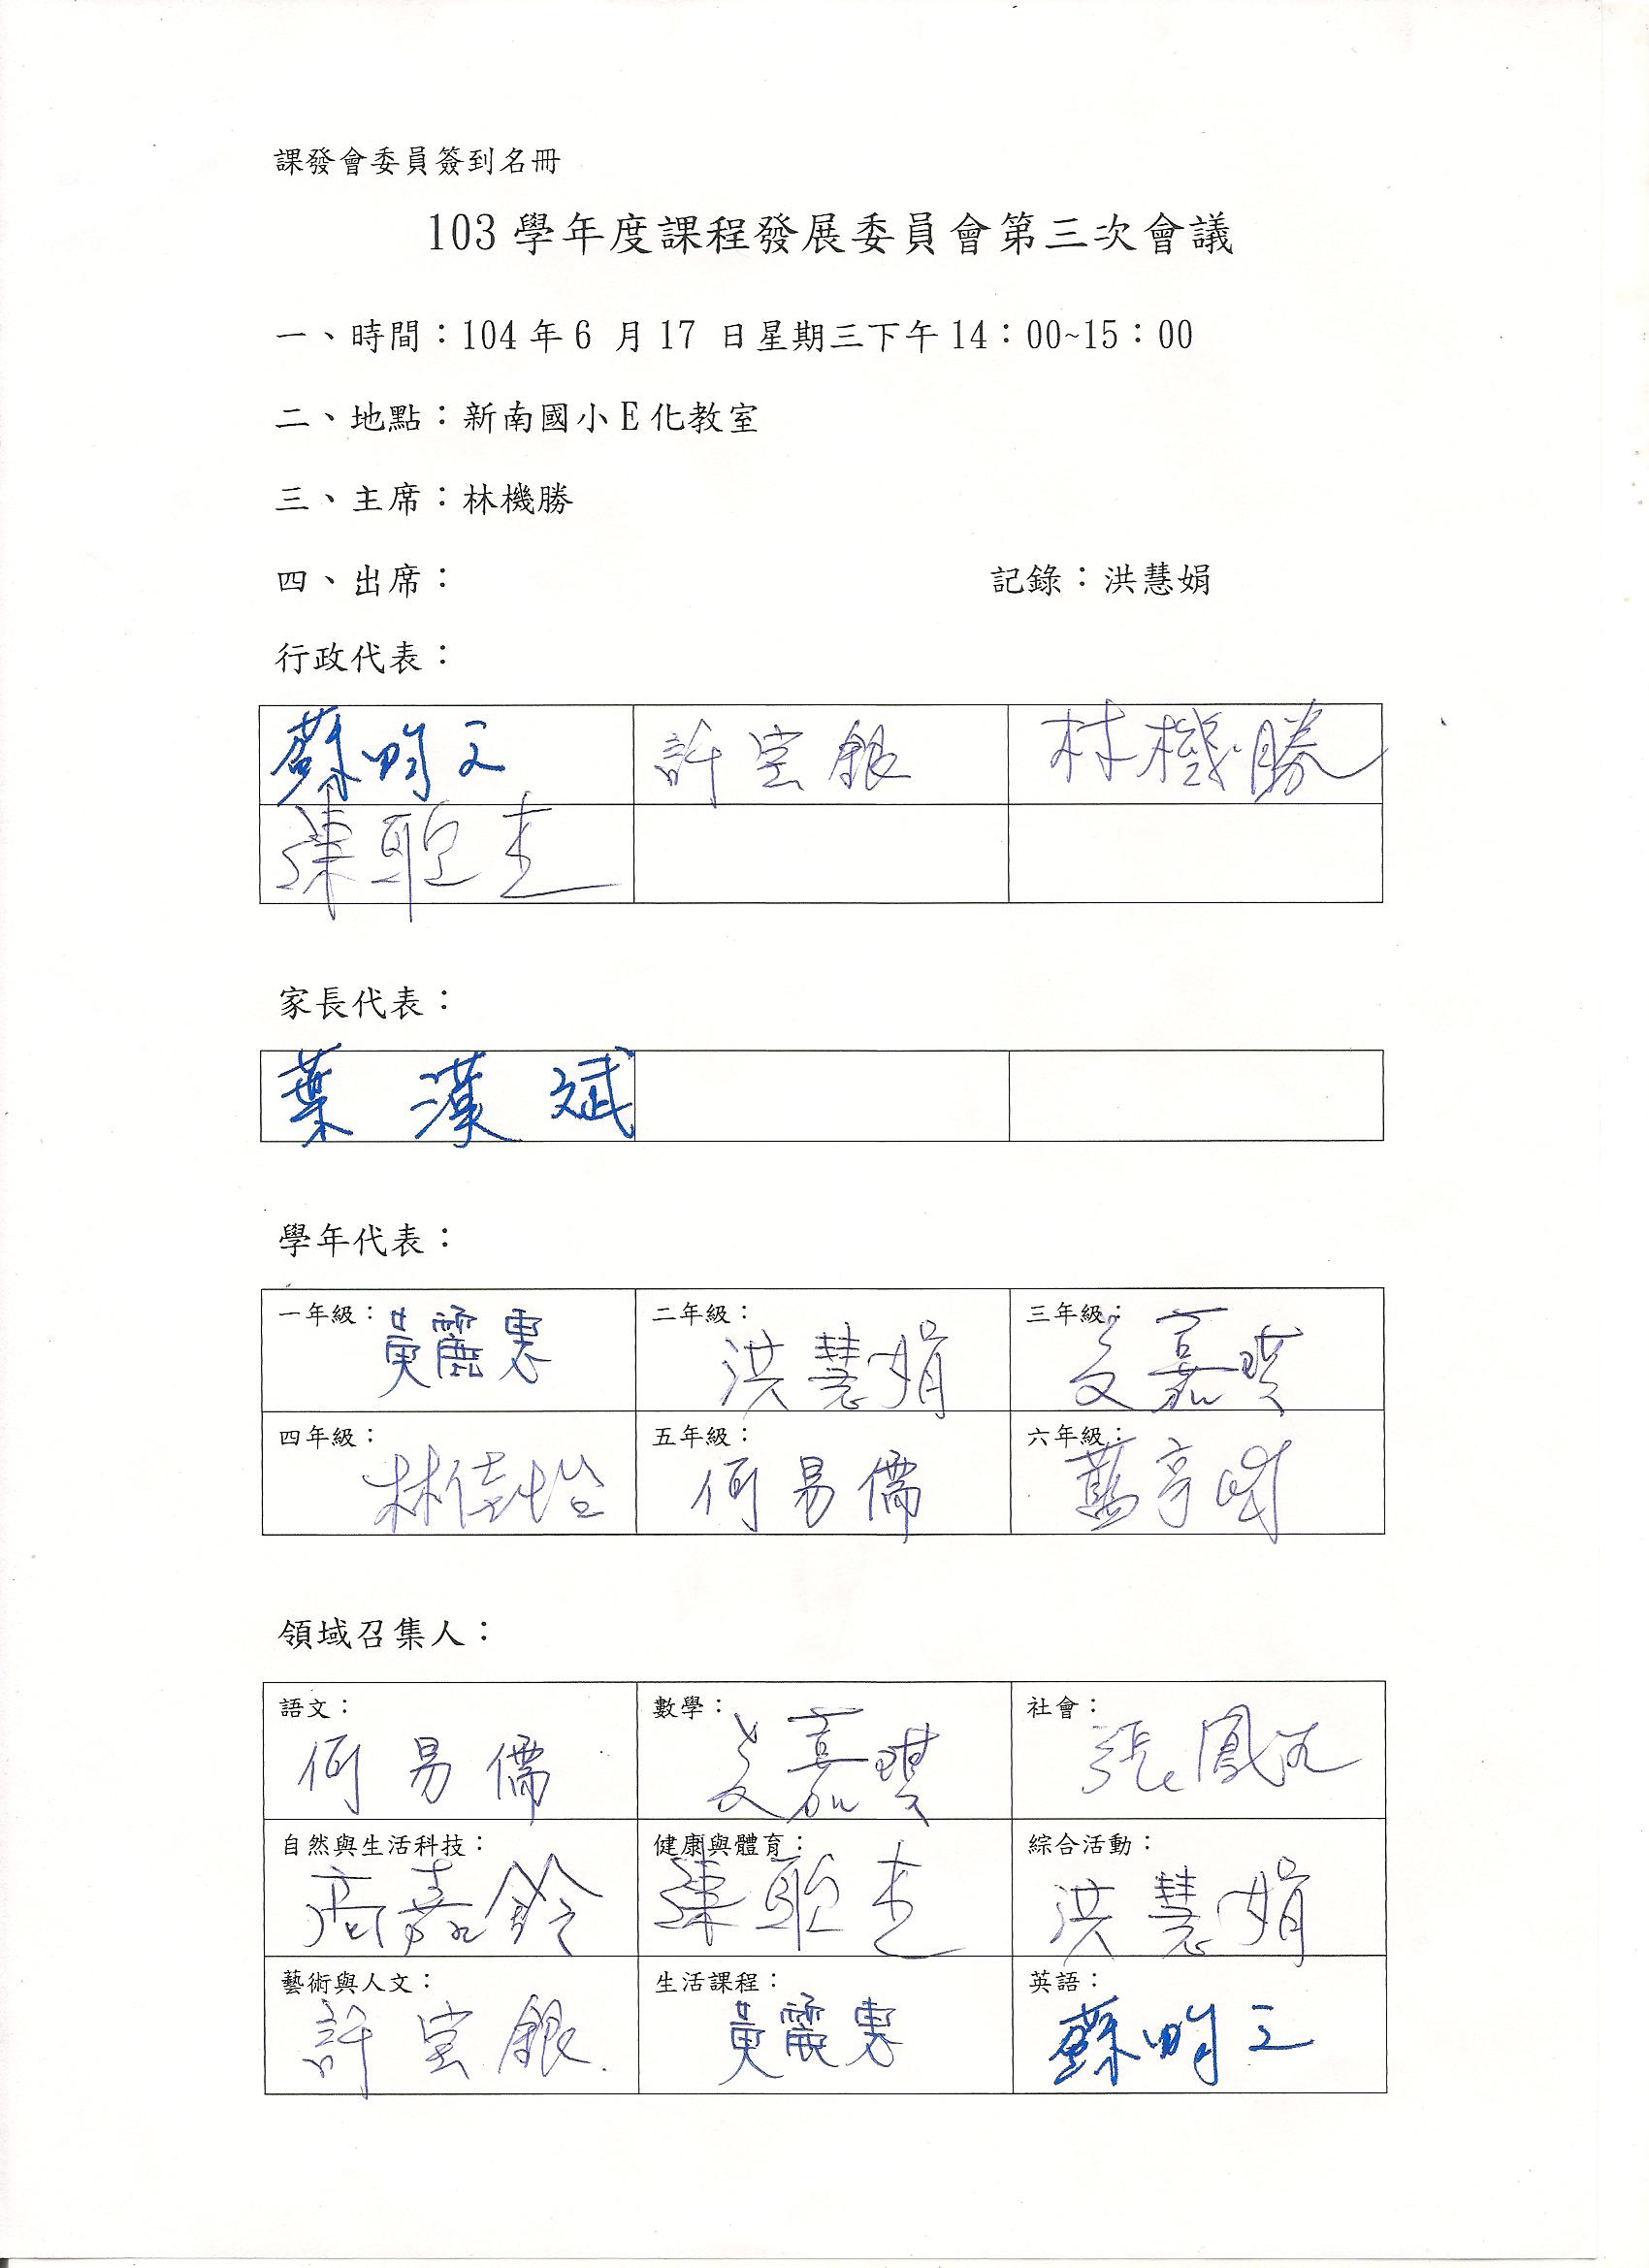 課發會委員簽到名冊
103 學年度課程發展委員會第三次會議
一、時間：104 年 6 月 17 日星期三下午 14：00~15：00
二、地點：新南國小 E 化教室
三、主席：林機勝
四、出席： 記錄：洪慧娟
行政代表：
蘇明文 許宝銀 林機勝
陳聰杰
家長代表：
葉漢斌
學年代表：
一年級：黃麗惠 二年級：洪慧娟 三年級：文嘉琪
四年級：林佳愷 五年級：何易儒 六年級：藍亨
領域召集人：
語文：何易儒 數學：文嘉琪 社會：張鳳
自然與生活科技：嘉鈴 健康與體育：陳聰杰 綜合活動：洪慧娟
藝術與人文：許宝銀 生活課程：黃麗惠 英語：蘇明文